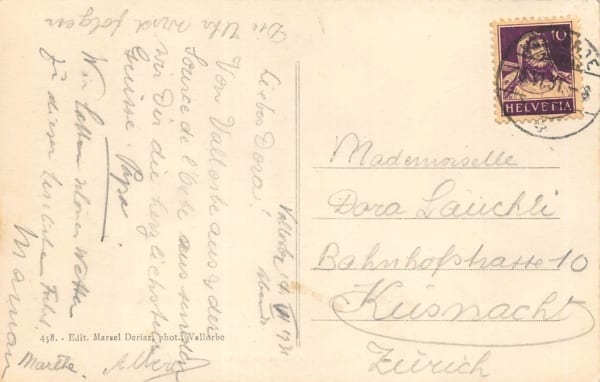 Vallorbe 14. VI 1931
abends
Liebes Dora!
Von Vallorbe aus & der
Source de l'Orbe aus senden
wir Dir die herzlichsten
Grüsse. Papa
Wir hatten schönes Wetter
zu dieser herrlichen Fahrt.
Maman
Martha.
Die Uhr wird folgen
438. - Edit. Marcel Deriaz, phot. Vallorbe
10
HELVETIA
Mademoiselle
Dora Läuchli
Bahnhofstrasse 10
Küsnacht
Zürich